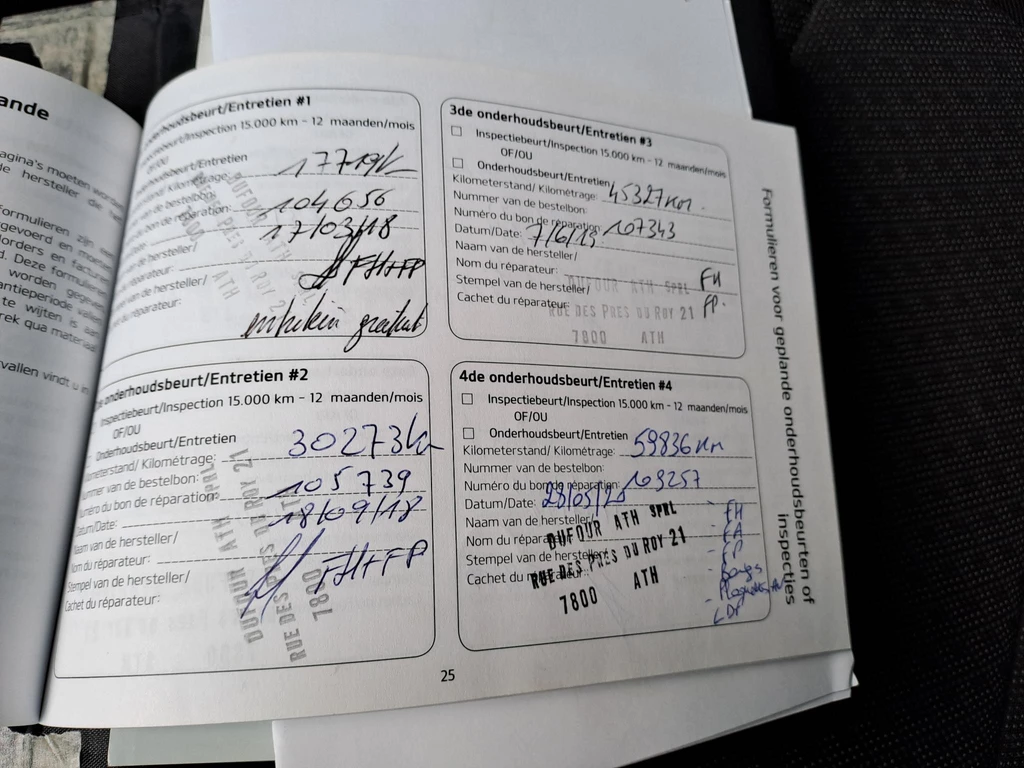 ande
agina's moeten worden
de hersteller die het
formulieren zijn een
gevoerd en moeten
lorders en facturen
d. Deze formulieren
worden gegeven
antieperiode vallen
te wijten is aan
rek qua materiaal
vallen vindt u in
onderhoudsbeurt/Entretien #1
Inspectiebeurt/Inspection 15.000 km - 12 maanden/mois
OF/OU
Onderhoudsbeurt/Entretien
Kilometerstand/ Kilométrage: 17719k
Nummer van de bestelbon:
Numéro du bon de réparation: 104656
Datum/Date: 17/03/18
Naam van de hersteller/
Nom du réparateur: FH+FP
Stempel van de hersteller/
Cachet du réparateur:
DUFOUR ATH
RUE DES PRES DU ROY 21
ATH
entretien gratuit
onderhoudsbeurt/Entretien #2
Inspectiebeurt/Inspection 15.000 km - 12 maanden/mois
OF/OU
Onderhoudsbeurt/Entretien
Kilometerstand/ Kilométrage: 30273k
Nummer van de bestelbon:
Numéro du bon de réparation: 105739
Datum/Date: 18/09/18
Naam van de hersteller/
Nom du réparateur: FH+FP
Stempel van de hersteller/
Cachet du réparateur:
DUFOUR ATH SPRL
RUE DES PRES DU ROY 21
7800
3de onderhoudsbeurt/Entretien #3
Inspectiebeurt/Inspection 15.000 km - 12 maanden/mois
OF/OU
Onderhoudsbeurt/Entretien
Kilometerstand/ Kilométrage: 45327km.
Nummer van de bestelbon:
Numéro du bon de réparation: 107343
Datum/Date: 7/6/19
Naam van de hersteller/
Nom du réparateur:
Stempel van de hersteller/
Cachet du réparateur:
FH
FP.
DUFOUR ATH SPRL
RUE DES PRES DU ROY 21
7800 ATH
4de onderhoudsbeurt/Entretien #4
Inspectiebeurt/Inspection 15.000 km - 12 maanden/mois
OF/OU
Onderhoudsbeurt/Entretien
Kilometerstand/ Kilométrage: 59836km
Nummer van de bestelbon:
Numéro du bon de réparation: 109257
Datum/Date:
Naam van de hersteller/
Nom du réparateur:
Stempel van de hersteller/
Cachet du réparateur:
DUFOUR ATH SPRL
RUE DES PRES DU ROY 21
7800 ATH
- FH
Formulieren voor geplande onderhoudsbeurten of
inspecties
25